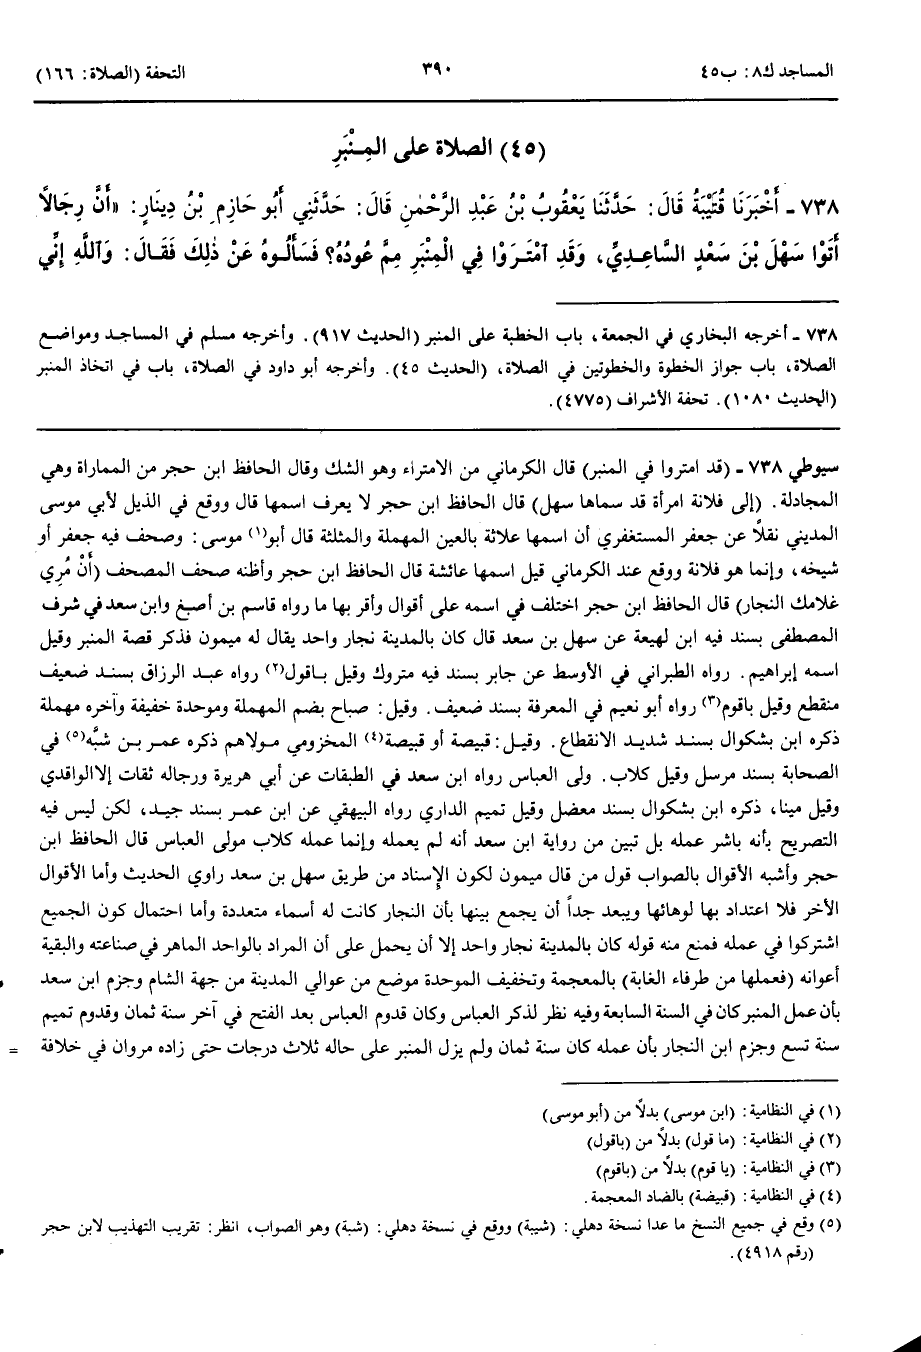 المساجد ك٨: ب٤٥
٣٩٠
التحفة (الصلاة: ١٦٦)
(٤٥) الصلاة على المِنْبَرِ
٧٣٨ ـ أَخْبَرَنَا قُتَيْبَةُ قَالَ: حَدَّثَنَا يَعْقُوبُ بْنُ عَبْدِ الرَّحْمٰنِ قَالَ: حَدَّثَنِي أَبُو حَازِمِ بْنُ دِينَارٍ: «أَنَّ رِجَالاً
أَتَوْا سَهْلَ بْنَ سَعْدٍ السَّاعِدِيَّ، وَقَدِ ٱمْتَرَوْا فِي الْمِنْبَرِ مِمَّ عُودُهُ؟ فَسَأَلُوهُ عَنْ ذٰلِكَ فَقَالَ: وَٱللَّهِ إِنِّي
٧٣٨ ـ أخرجه البخاري في الجمعة، باب الخطبة على المنبر (الحديث ٩١٧). وأخرجه مسلم في المساجد ومواضع
الصلاة، باب جواز الخطوة والخطوتين في الصلاة، (الحديث ٤٥). وأخرجه أبو داود في الصلاة، باب في اتخاذ المنبر
(الحديث ١٠٨٠). تحفة الأشراف (٤٧٧٥).
سيوطي ٧٣٨ ـ (قد امتروا في المنبر) قال الكرماني من الامتراء وهو الشك وقال الحافظ ابن حجر من المماراة وهي
المجادلة. (إلى فلانة امرأة قد سماها سهل) قال الحافظ ابن حجر لا يعرف اسمها قال ووقع في الذيل لأبي موسى
المديني نقلاً عن جعفر المستغفري أن اسمها علاثة بالعين المهملة والمثلثة قال أبو(١) موسى: وصحف فيه جعفر أو
شيخه، وإنما هو فلانة ووقع عند الكرماني قيل اسمها عائشة قال الحافظ ابن حجر وأظنه صحف المصحف (أَنْ مُرِي
غلامك النجار) قال الحافظ ابن حجر اختلف في اسمه على أقوال وأقر بها ما رواه قاسم بن أصبغ وابن سعد في شرف
المصطفى بسند فيه ابن لهيعة عن سهل بن سعد قال كان بالمدينة نجار واحد يقال له ميمون فذكر قصة المنبر وقيل
اسمه إبراهيم. رواه الطبراني في الأوسط عن جابر بسند فيه متروك وقيل باقول(٢) رواه عبد الرزاق بسند ضعيف
منقطع وقيل باقوم(٣) رواه أبو نعيم في المعرفة بسند ضعيف. وقيل: صباح بضم المهملة وموحدة خفيفة وآخره مهملة
ذكره ابن بشكوال بسند شديد الانقطاع. وقيل: قبيصة أو قبيصة(٤) المخزومي مولاهم ذكره عمر بن شبَّه(٥) في
الصحابة بسند مرسل وقيل كلاب. ولى العباس رواه ابن سعد في الطبقات عن أبي هريرة ورجاله ثقات إلاالواقدي
وقيل مينا، ذكره ابن بشكوال بسند معضل وقيل تميم الداري رواه البيهقي عن ابن عمر بسند جيد، لكن ليس فيه
التصريح بأنه باشر عمله بل تبين من رواية ابن سعد أنه لم يعمله وإنما عمله كلاب مولى العباس قال الحافظ ابن
حجر وأشبه الأقوال بالصواب قول من قال ميمون لكون الإسناد من طريق سهل بن سعد راوي الحديث وأما الأقوال
الأخر فلا اعتداد بها لوهائها ويبعد جداً أن يجمع بينها بأن النجار كانت له أسماء متعددة وأما احتمال كون الجميع
اشتركوا في عمله فمنع منه قوله كان بالمدينة نجار واحد إلا أن يحمل على أن المراد بالواحد الماهر في صناعته والبقية
أعوانه (فعملها من طرفاء الغابة) بالمعجمة وتخفيف الموحدة موضع من عوالي المدينة من جهة الشام وجزم ابن سعد
بأن عمل المنبر كان في السنة السابعة وفيه نظر لذكر العباس وكان قدوم العباس بعد الفتح في آخر سنة ثمان وقدوم تميم
سنة تسع وجزم ابن النجار بأن عمله كان سنة ثمان ولم يزل المنبر على حاله ثلاث درجات حتى زاده مروان في خلافة =
(١) في النظامية: (ابن موسى) بدلاً من (أبو موسى)
(٢) في النظامية: (ما قول) بدلاً من (باقول)
(٣) في النظامية: (يا قوم) بدلاً من (باقوم)
(٤) في النظامية: (قبيضة) بالضاد المعجمة.
(٥) وقع في جميع النسخ ما عدا نسخة دهلي: (شيبة) ووقع في نسخة دهلي: (شبة) وهو الصواب، انظر: تقريب التهذيب لابن حجر
(رقم ٤٩١٨).